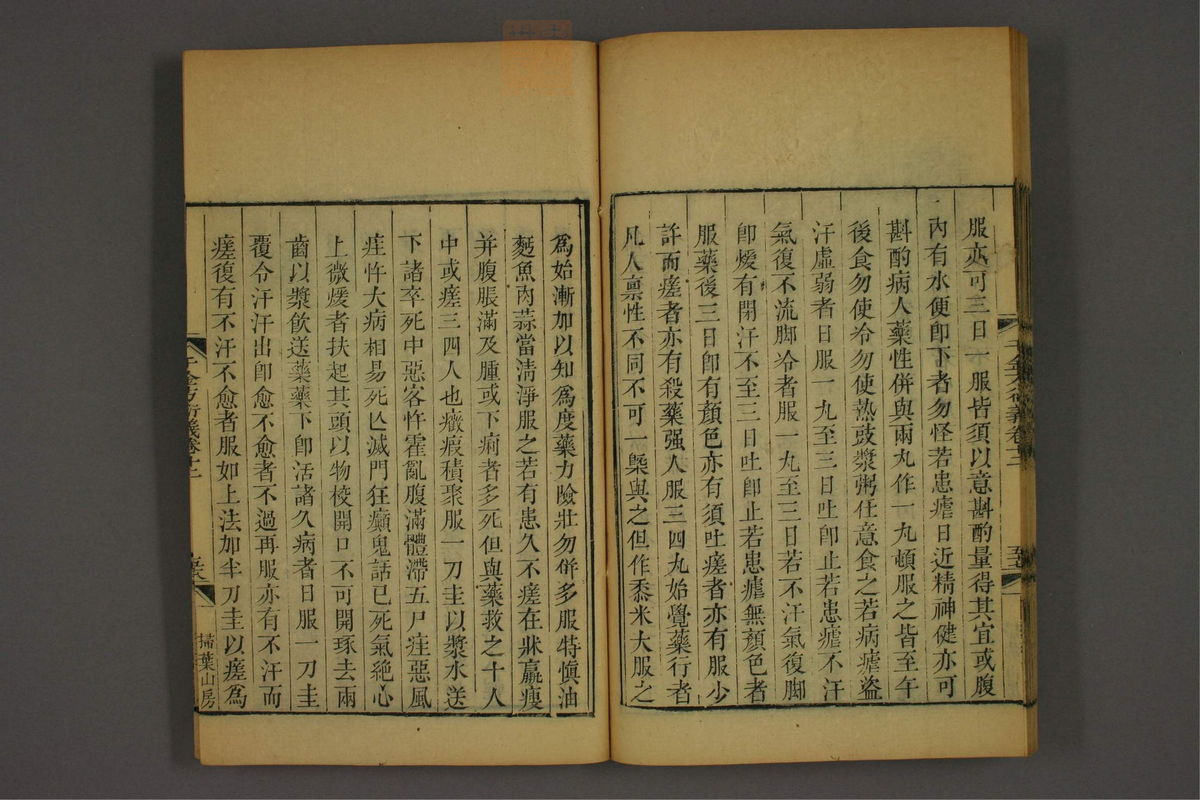 服亦可三日一服皆須以意斟酌量得其宜或腹
內有水便卽下者勿怪若患瘧日近精神健亦可
斟酌病人藥性併與兩丸作一丸頓服之皆至午
後食勿使冷勿使熱豉漿粥任意食之若病瘧盜
汗虛弱者日服一丸至三日吐卽止若患瘧不汗
氣復不流脚冷者服一丸至三日若不汗氣復脚
卽煖有閉汗不至三日吐卽止若患瘧無顏色者
服藥後三日卽有顏色亦有須吐瘥者亦有服少
許而瘥者亦有殺藥强人服三四丸始覺藥行者
凡人禀性不同不可一槩與之但作黍米大服之
千金方衍義卷十二
爲始漸加以知爲度藥力險壯勿併多服特愼油
麪魚肉蒜當淸淨服之若有患久不瘥在牀羸瘦
并腹脹滿及腫或下痢者多死但與藥救之十人
中或瘥三四人也癥瘕積聚服一刀圭以漿水送
下諸卒死中惡客忤霍亂腹滿體滯五尸疰惡風
疰忤大病相易死亾滅門狂癲鬼話已死氣絕心
上微煖者扶起其頭以物校開口不可開琢去兩
齒以漿飮送藥藥下卽活諸久病者日服一刀圭
覆令汗汗出卽愈不愈者不過再服亦有不汗而
瘥復有不汗不愈者服如上法加半刀圭以瘥爲
千金方衍義卷十二
掃葉山房